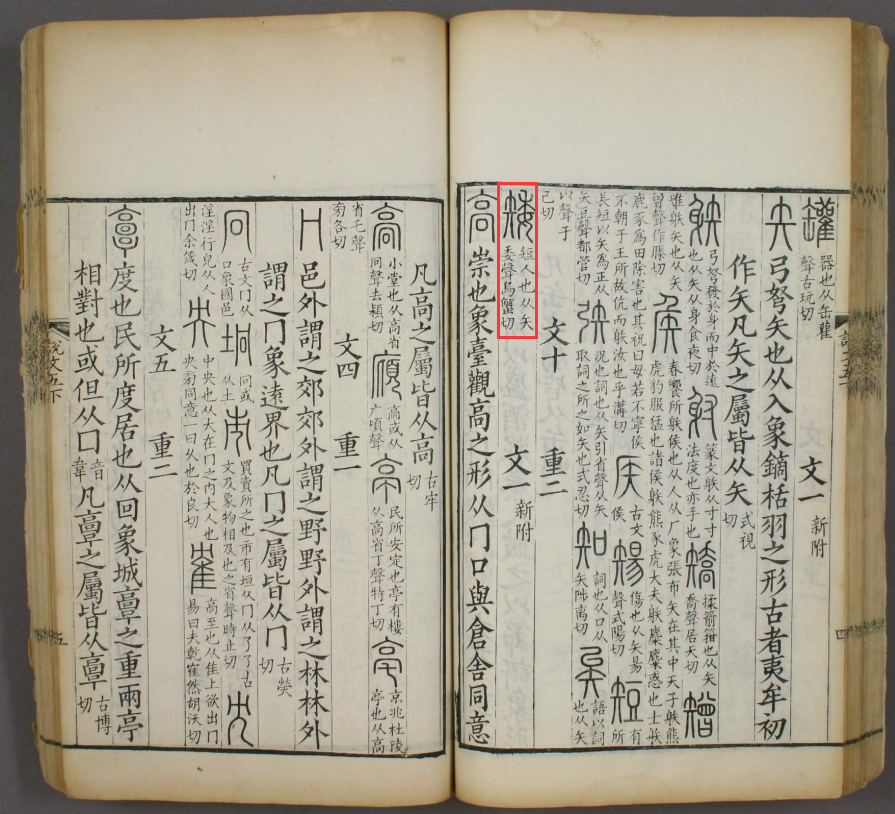 罐 器也从缶雚聲古玩切 文一 新附
矢 弓弩矢也从入象鏑栝羽之形古者夷牟初
作矢凡矢之屬皆从矢 式視切
䠶 弓弩發於身而中於遠也从矢从身食夜切 射 篆文䠶从寸寸法度也亦手也 矯 揉箭箝也从矢喬聲居夭切 矰
隿䠶矢也从矢曾聲作滕切 矦 春饗所䠶矦也从人从厂象張布矢在其中天子䠶熊虎豹服猛也諸侯䠶熊豕虎大夫䠶麋麋惑也士䠶
鹿豕為田除害也其祝曰毋若不寧侯不朝于王所故伉而䠶汝也乎溝切 𥎦 古文矦 𥏻 傷也从矢昜聲式陽切 短 有所
長短以矢為正从矢豆聲都管切 矤 況也詞也从矢引省聲从矢取詞之所之如矢也式忍切 知 詞也从口从矢陟离切 矣 語以詞也从矢
以聲于已切 文十 重二
矮 短人也从矢委聲烏蟹切 文一 新附
高 崇也象臺觀高之形从冂口與倉舍同意
說文五下 四
凡高之屬皆从高 古牢切
高 小堂也从高省冋聲去潁切 廎 高或从广頃聲 亭 民所安定也亭有樓从高省丁聲特丁切 亳 京兆杜陵亭也从高
省乇聲㫄各切 文四 重一
冂 邑外謂之郊郊外謂之野野外謂之林林外
謂之冂象遠界也凡冂之屬皆从冂 古熒切
冋 古文冂从口象國邑 坰 冋或从土 市 買賣所之也市有垣从冂从乁乁古文及象物相及也之省聲時止切 冘
淫淫行皃从人出冂余箴切 央 中央也从大在冂之內大人也央㫄同意一曰久也於良切 隺 高至也从隹上欲出冂易曰夫乾隺然胡沃切
文五 重二
𩫏 度也民所度居也从回象城𩫏之重兩亭
相對也或但从口 音韋 凡𩫏之屬皆从𩫏 古博切
說文五下 五